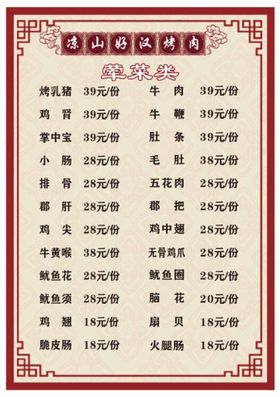 凉山好汉烤肉
荤菜类
烤乳猪 39元/份 牛肉 39元/份
鸡肾 39元/份 牛鞭 39元/份
掌中宝 39元/份 肚条 39元/份
小肠 28元/份 毛肚 38元/份
排骨 28元/份 五花肉 28元/份
郡肝 28元/份 郡把 28元/份
鸡尖 28元/份 鸡中翅 28元/份
牛黄喉 38元/份 无骨鸡爪 28元/份
鱿鱼花 28元/份 鱿鱼圈 28元/份
鱿鱼须 28元/份 脑花 20元/份
鸡翅 18元/份 扇贝 18元/份
脆皮肠 18元/份 火腿肠 18元/份